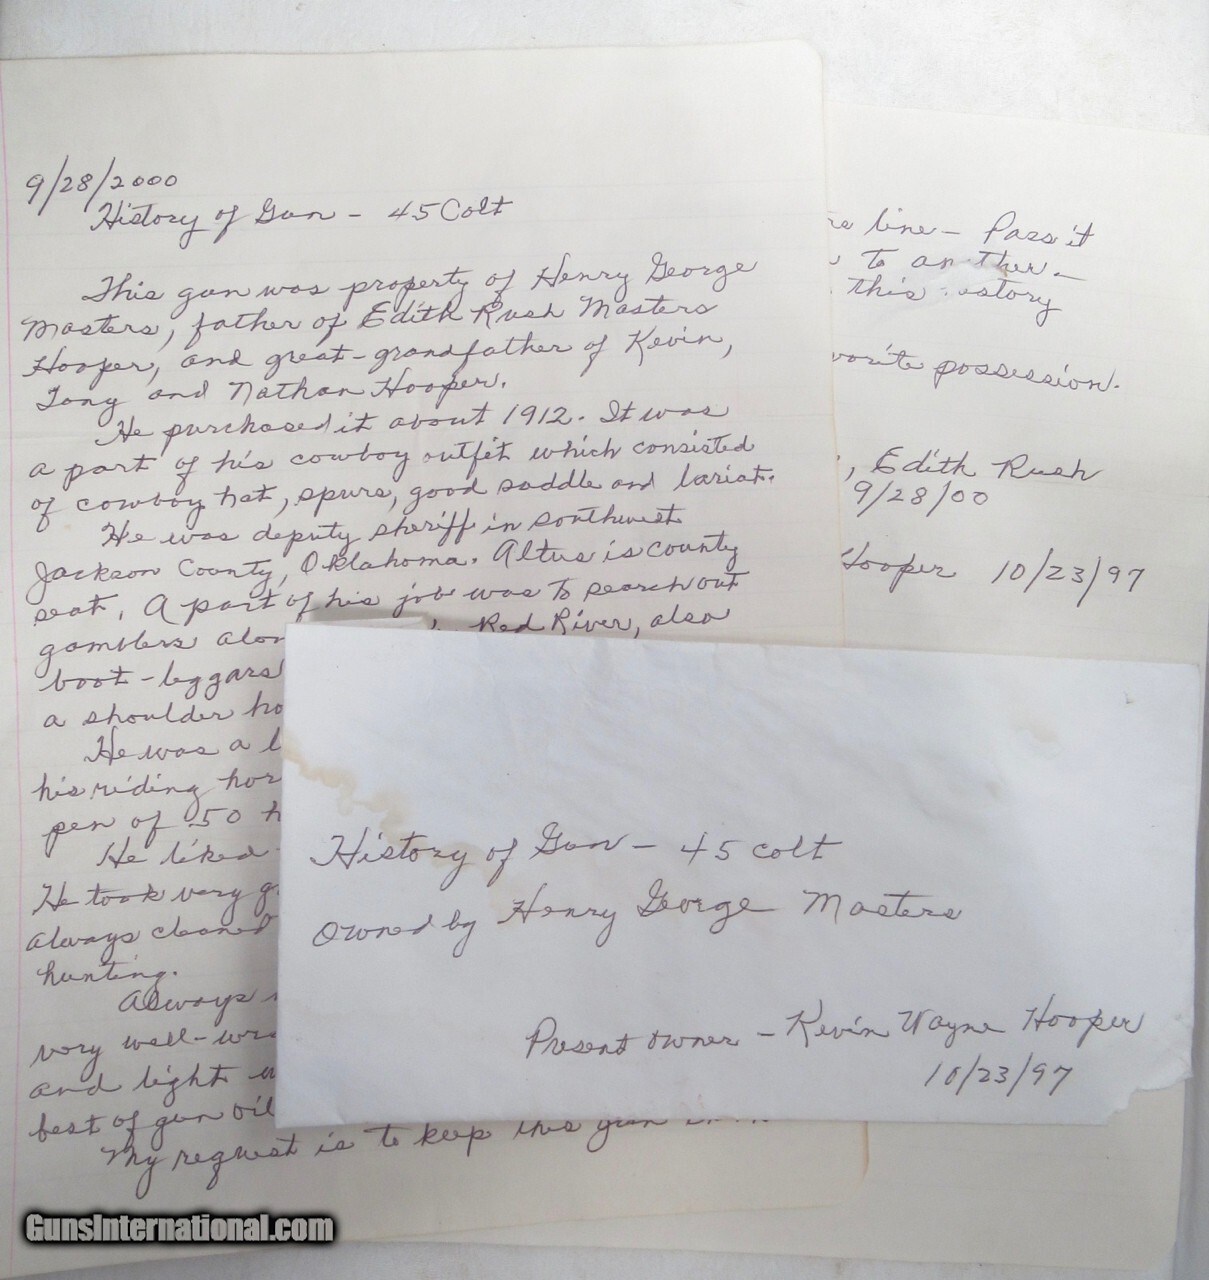 9/28/2000
History of Gun - 45 Colt
This gun was property of Henry George
Masters, father of Edith Rush Masters
Hooper, and great-grandfather of Kevin,
Tony and Nathan Hooper.
He purchased it about 1912. It was
a part of his cowboy outfit which consisted
of cowboy hat, spurs, good saddle and lariat.
He was deputy sheriff in southwest
Jackson County, Oklahoma. Altus is county
seat. A part of his job was to search out
gamblers Red River, also
boot-leggars
a shoulder
He was a
his riding
pen of 50
He liked
He took very
always cleaned
hunting.
Always
very
and light
best of gun oil
My request is to keep this gun
line - Pass it
to another.
this
possession.
, Edith Rush
9/28/00
Hooper 10/23/97
History of Gun - 45 colt
owned by Henry George Masters
Present owner - Kevin Wayne Hooper
10/23/97
GunsInternational.com